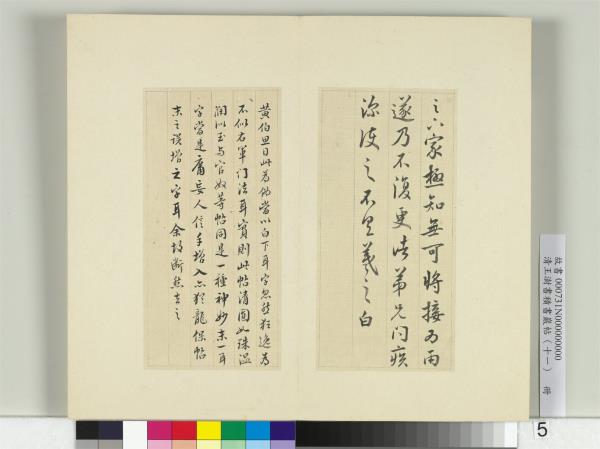 之六家極知無可將接為雨
遂乃不復更諸弟兄問疾
深護之不具羲之白
黃伯思曰此為偽當以白下耳字忽爾狂逸為
不似右軍門法耳實則此帖清圓如珠溫
潤似玉与官奴等帖同是一種神妙末一耳
字當是庸妄人信手增入亦猶龍保帖
末之誤增之字耳余故斷然去之
故書000731N000000000
清王澍書積書巖帖（十一） 冊
5